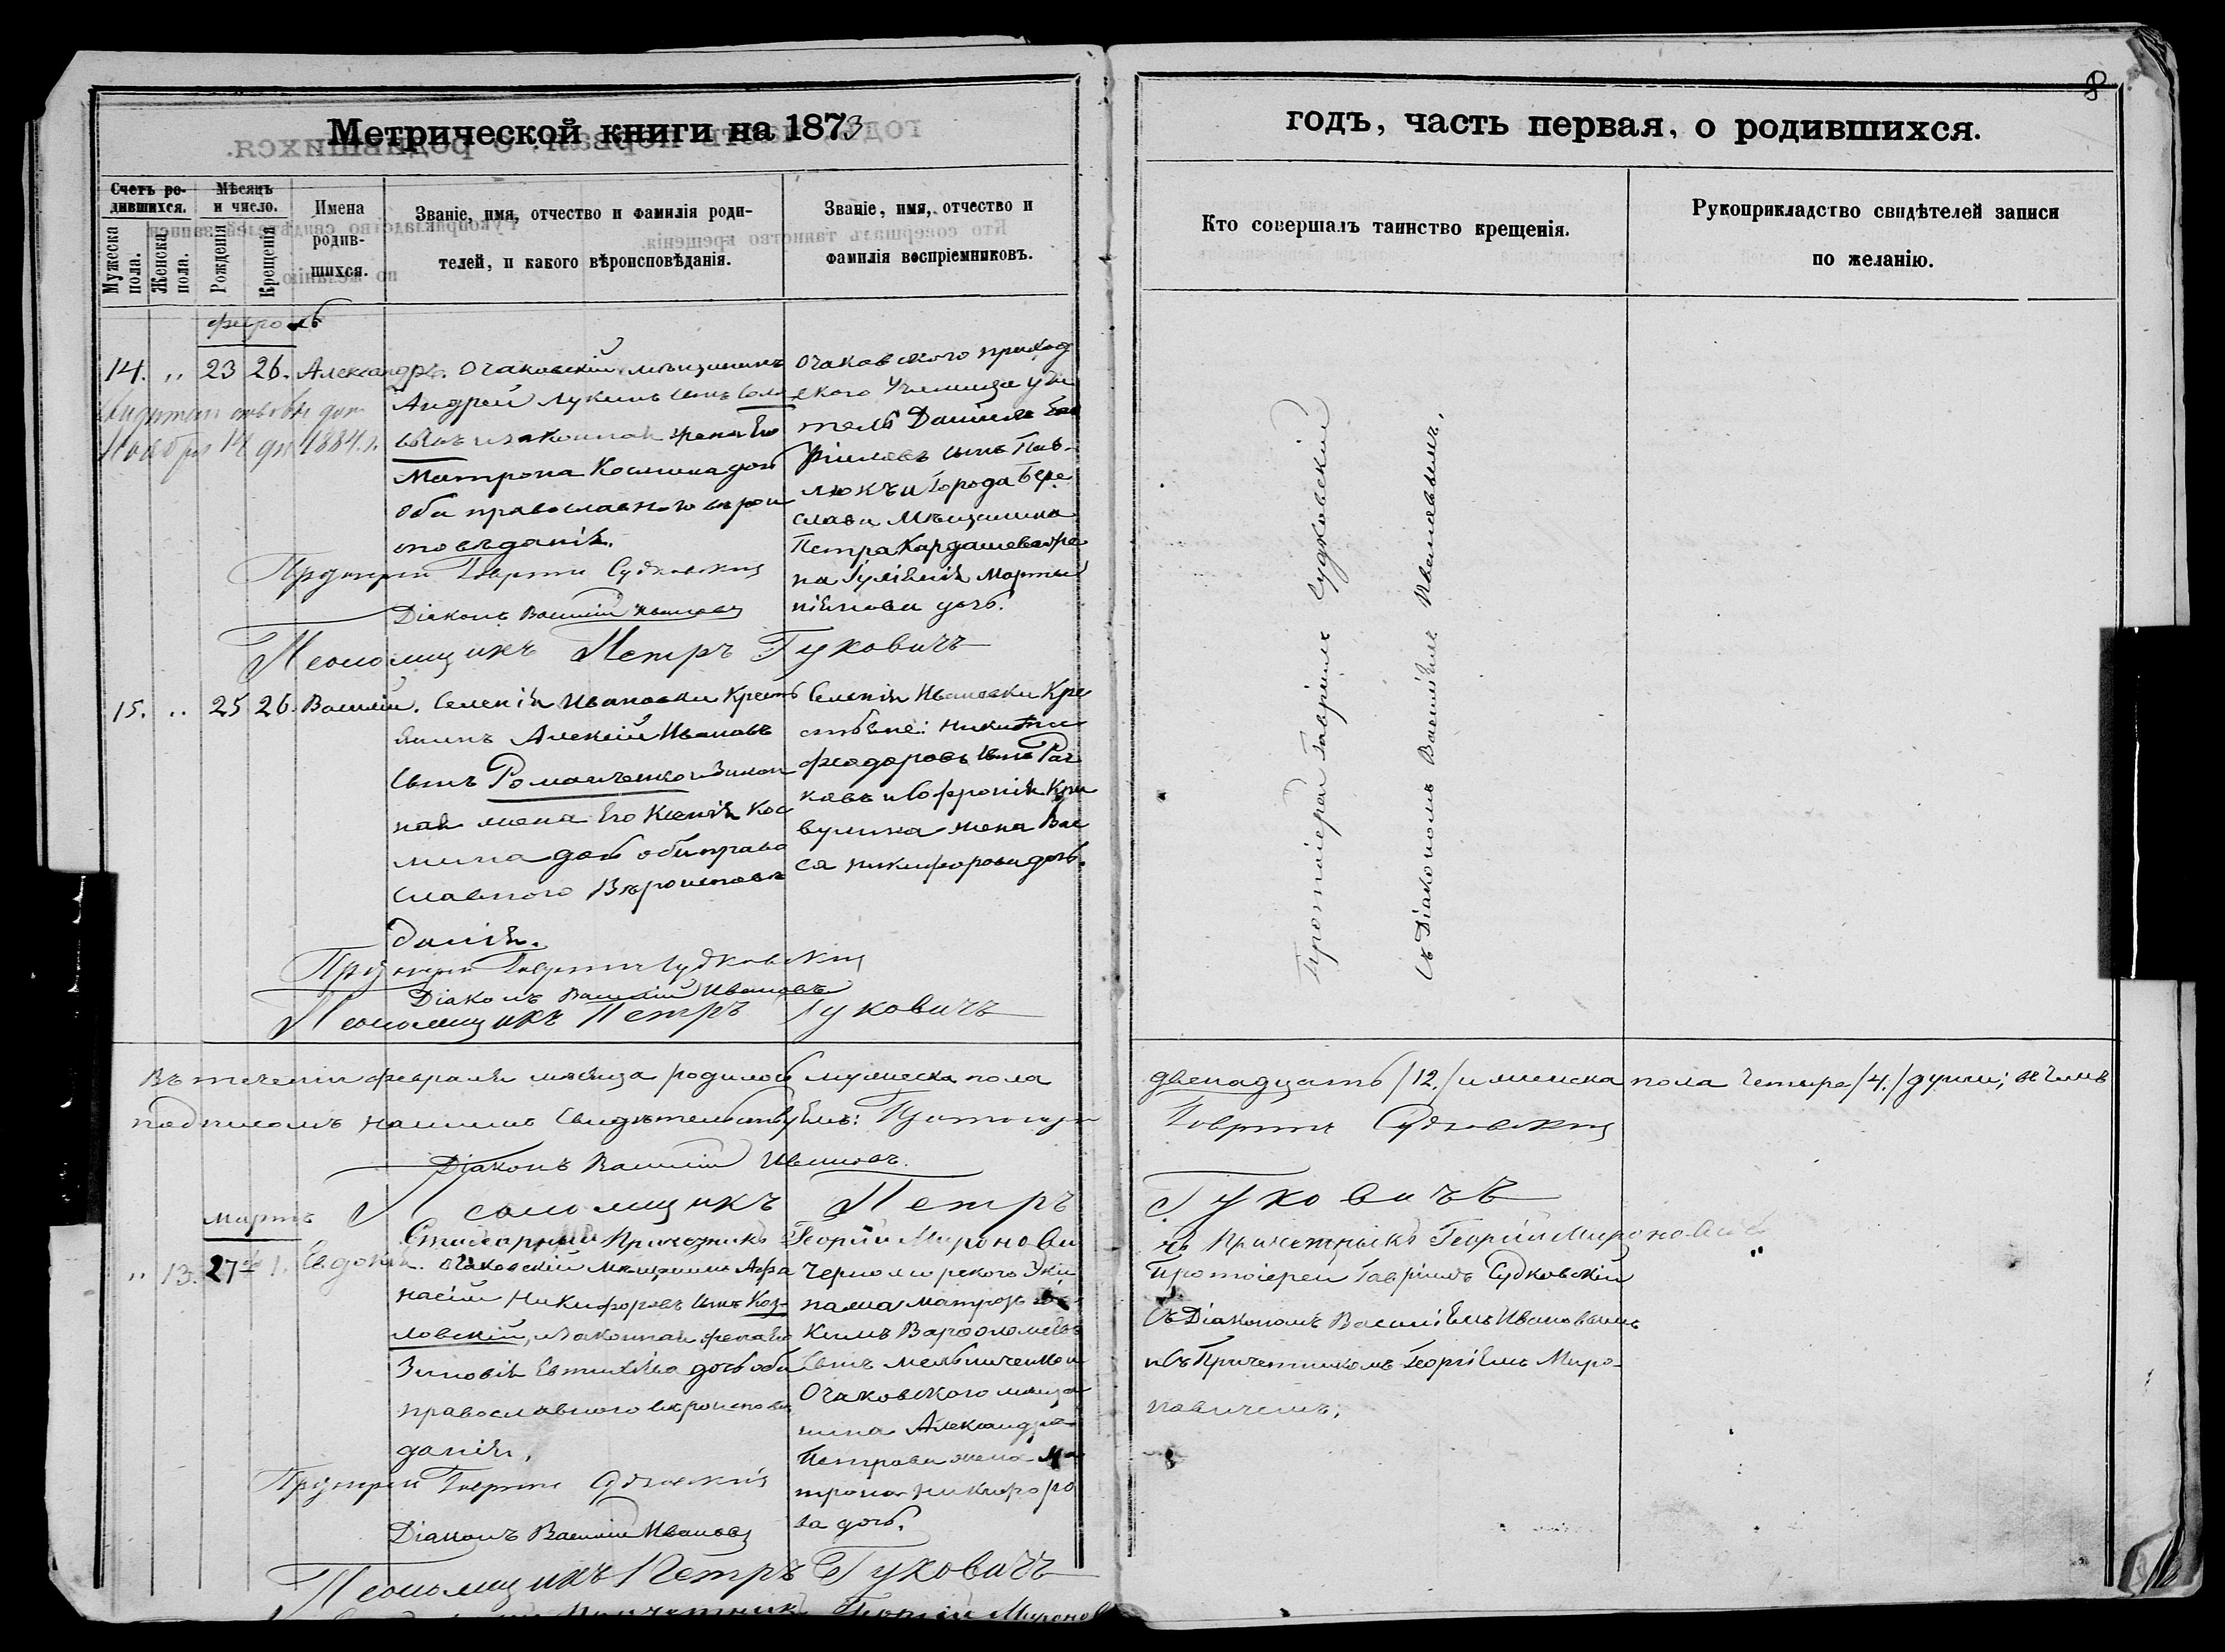 8
Метрической книги на 1873
годъ, часть первая, о родившихся.
Счетъ родившихся.
Мужеска пола.
Женска пола.
Мѣсяцъ и число.
Рожденія
Крещенія
Имена родившихся.
Званіе, имя, отчество и фамилія родителей, и какого вѣроисповѣданія.
Званіе, имя, отчество и фамилія воспріемниковъ.
Кто совершалъ таинство крещенія.
Рукоприкладство свидѣтелей записи по желанію.
14. „ 23 26. Александръ.
Ноября 14 дня 1884 г.
Очаковскій мѣщанинъ
Андрей Лукинъ сынъ
и законная жена Его
Матрона Космина дочь
оба православнаго вѣрои
сповѣданія.
Протоіерей Гавріилъ Судковскій
Діаконъ Василій Ивановъ
Псаломщикъ Петръ Гуковичъ
Очаковского приход
ского Училища учи
тель Даніилъ
сынъ Пав-
люкъ и города Бере
слава Мѣщанина
Петра Кардашева же
на Іуліанія Марты
ніянова дочь.
Протоіерей Гавріилъ Судковскій
Съ Діакономъ Василіемъ Ивановымъ.
15. „ 25 26. Василій.
Селенія Ивановки Кресть
янинъ Алексій Ивановъ
сынъ Романченко и Закон
ная жена Его Ксенія Кос
мина дочь оба право
славного Вѣроисповѣ
данія.
Протоіерей Гавріилъ Судковскій
Діаконъ Василій Ивановъ
Псаломщикъ Петръ Гуковичъ
Селенія Ивановки Кре
стьяне: Никита
Феодоровъ сынъ
ковъ и Софронія Кри
вулина жена Вас
са Никифорова дочь.
Въ теченіи февраля мѣсяца родилось мужеска пола двенадцать /12./ и женска пола четыре /4./ души; въ чемъ
подписомъ нашимъ свидѣтельствуемъ: Протоіерей Гавріилъ Судковскій
Діаконъ Василій Ивановъ.
Псаломщикъ Петръ Гуковичъ
Причетникъ Георгій Мироновичъ
Мартъ
„ 13. 27 1. Евдокія.
Очаковскій Мѣщанинъ Афа
насій Никифоровъ сынъ Коз-
ловскій, и законная жена Его
Зиновія Евтихіева дочь оба
православного вѣроисповѣ
данія.
Протоіерей Гавріилъ Судковскій
Діаконъ Василій Ивановъ
Псаломщикъ Петръ Гуковичъ
Причетникъ Георгій Миронов
Черноморского Эки
пажа матрозъ
кимъ Варфоломеевъ
сынъ Мельниченко и
Очаковского мѣща
нина Александра
Петрова жена Ма
трона Никифоро
ва дочь.
Протоіерей Гавріилъ Судковскій
Съ Діакономъ Василіемъ Ивановымъ
и Съ Причетникомъ Георгіемъ Миро-
новичемъ;